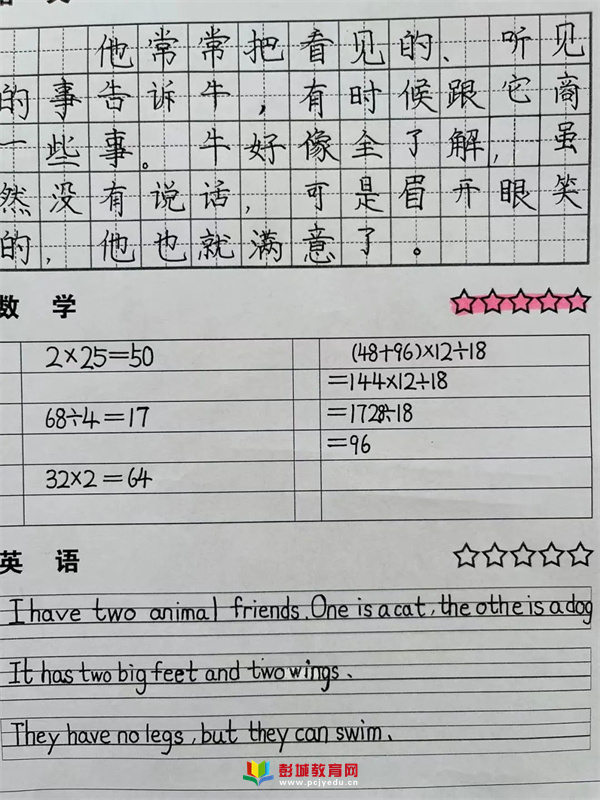 他常常把看见的、听见
的事告诉牛，有时候跟它商
一些事。牛好像全了解，虽
然没有说话，可是眉开眼笑
的，他也就满意了。
数 学
2×25=50
68÷4=17
32×2=64
(48+96)×12÷18
=144×12÷18
=1728÷18
=96
英 语
I have two animal friends. One is a cat, the othe is a dog
It has two big feet and two wings.
They have no legs, but they can swim.
彭城教育网
www.pcjyedu.cn